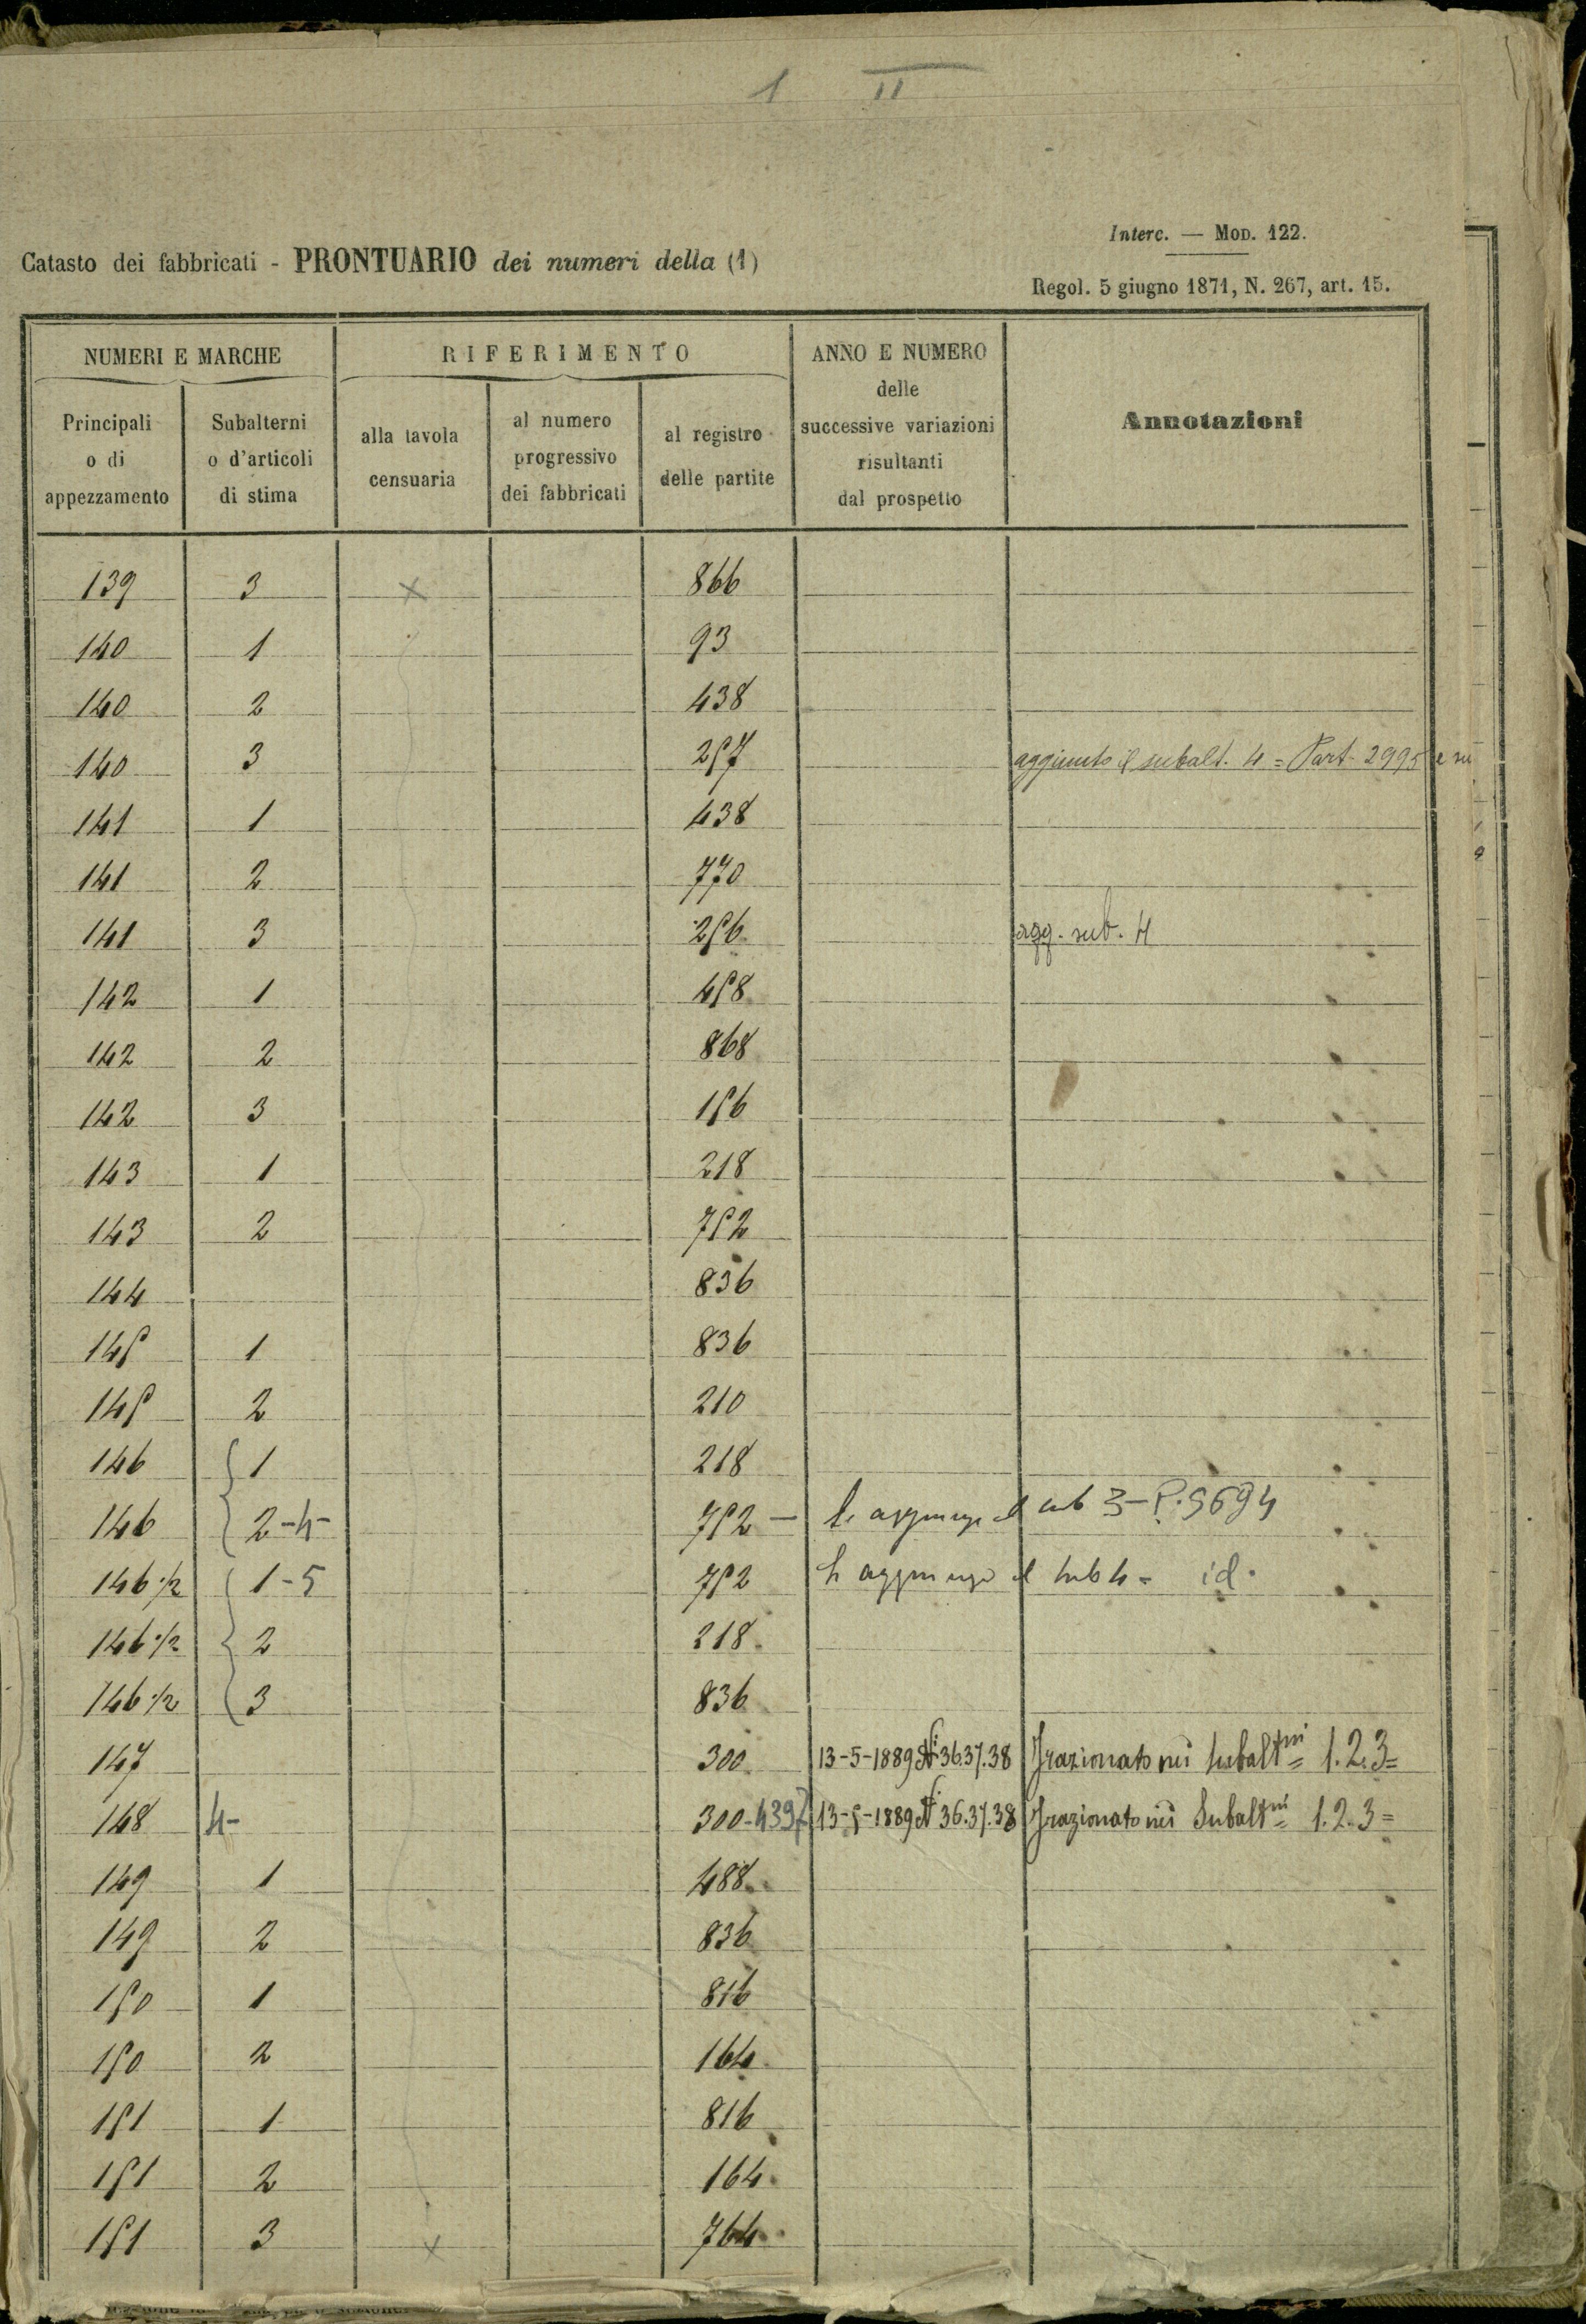 1 II
Interc. — MOD. 122.
Catasto dei fabbricati - PRONTUARIO dei numeri della (1)
Regol. 5 giugno 1871, N. 267, art. 15.
NUMERI E MARCHE
RIFERIMENTO
ANNO E NUMERO
delle
successive variazioni
risultanti
dal prospetto
Annotazioni
Principali
o di
appezzamento
Subalterni
o d'articoli
di stima
alla tavola
censuaria
al numero
progressivo
dei fabbricati
al registro
delle partite
139 3 x 866
140 1 93
140 2 438
140 3 257 aggiunto il subalt. 4 = Part. 2995 e
141 1 438
141 2 770
141 3 256 agg. sub. 4
142 1 458
142 2 868
142 3 156
143 1 218
143 2 752
144 836
145 1 836
145 2 210
146 1 218
146 2-4- 752 — Si aggiunge il sub 3-P.
146 1/2 1-5 752 Si aggiunge il sub 4 = id.
146 1/2 2 218
146 1/2 3 836
147 300 13-5-1889 N. 36.37.38 Frazionato nei Subalt.ni = 1.2.3=
148 4- 300-4397 13-5-1889 N. 36.37.38 Frazionato nei Subalt.ni = 1.2.3=
149 1 488
149 2 836
150 1 816
150 2 164
151 1 816
151 2 164
151 3 x 764